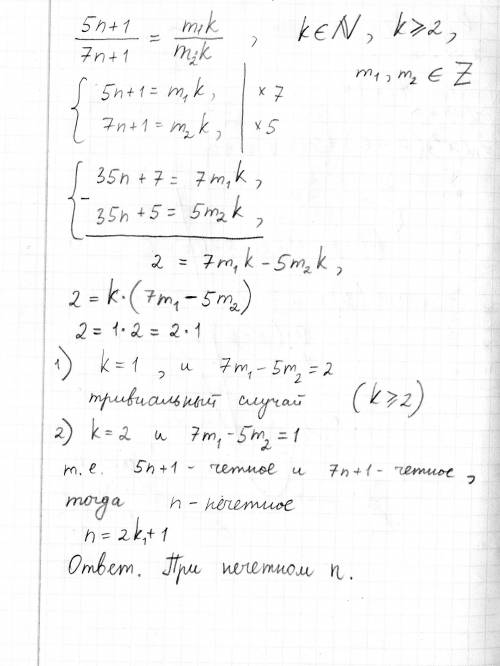 (5n+1)/(7n+1) = m₁k/m₂k , k∈N, k⩾2,
m₁, m₂ ∈ Z
{ 5n+1 = m₁k, | ×7
7n+1 = m₂k, | ×5
{ 35n+7 = 7m₁k,
- 35n+5 = 5m₂k,
2 = 7m₁k - 5m₂k,
2 = k·(7m₁ - 5m₂)
2 = 1·2 = 2·1
1) k=1, и 7m₁-5m₂=2
тривиальный случай (k⩾2)
2) k=2 и 7m₁-5m₂=1
т.е. 5n+1 - четное и 7n+1 - четное,
тогда n - нечетное
n=2k₁+1
Ответ. При нечетном n.